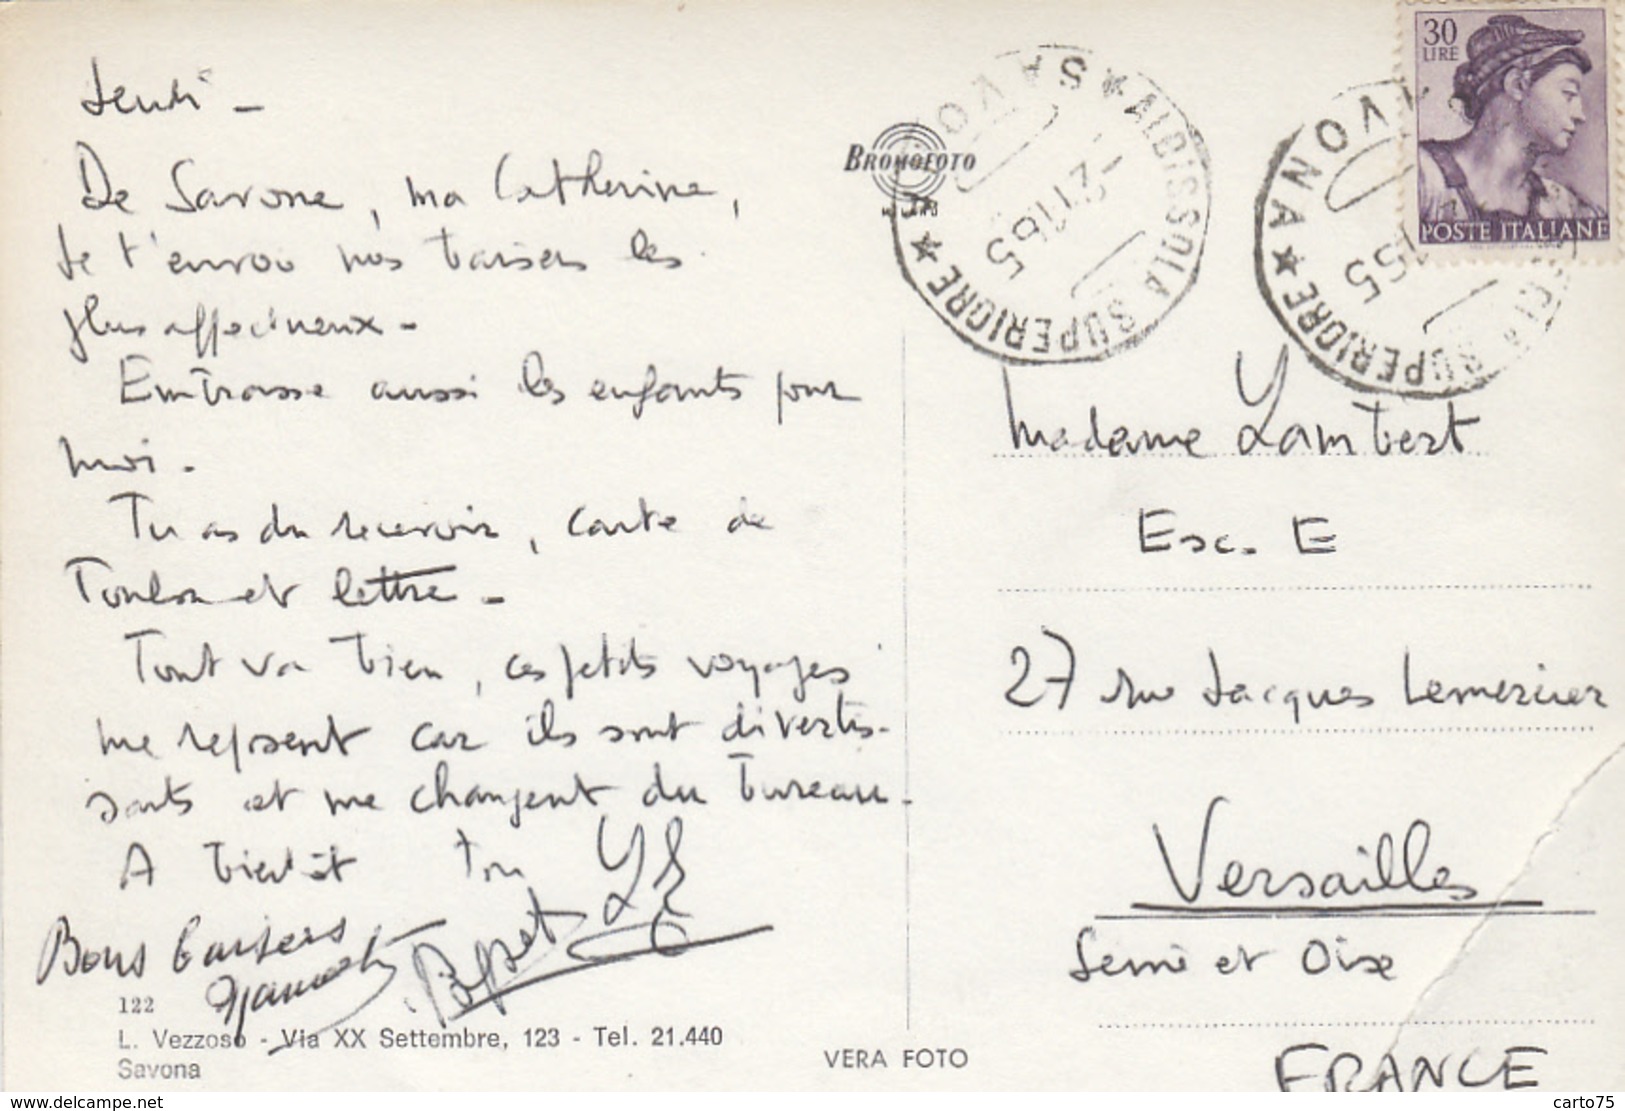 Jeudi -
De Savone, ma Catherine,
Je t'envoie nos baisers les
plus affectueux -
Embrasse aussi les enfants pour
moi -
Tu as du recevoir, carte de
Toulon et lettre -
Tout va bien, ces petits voyages
me reposent car ils sont divertis-
sants et me changent du bureau -
A bientôt ton
Bons baisers
122
L. Vezzoso - Via XX Settembre, 123 - Tel. 21.440
Savona
VERA FOTO
BROMOFOTO
MILANO
ALBISSOLA SUPERIORE ★ SAVONA ★
-2 11 65
SUPERIORE ★ SAVONA
65
30
LIRE
POSTE ITALIANE
Madame Lambert
Esc. E
27 rue Jacques Lemercier
Versailles
Seine et Oise
FRANCE
www.delcampe.net
carto75